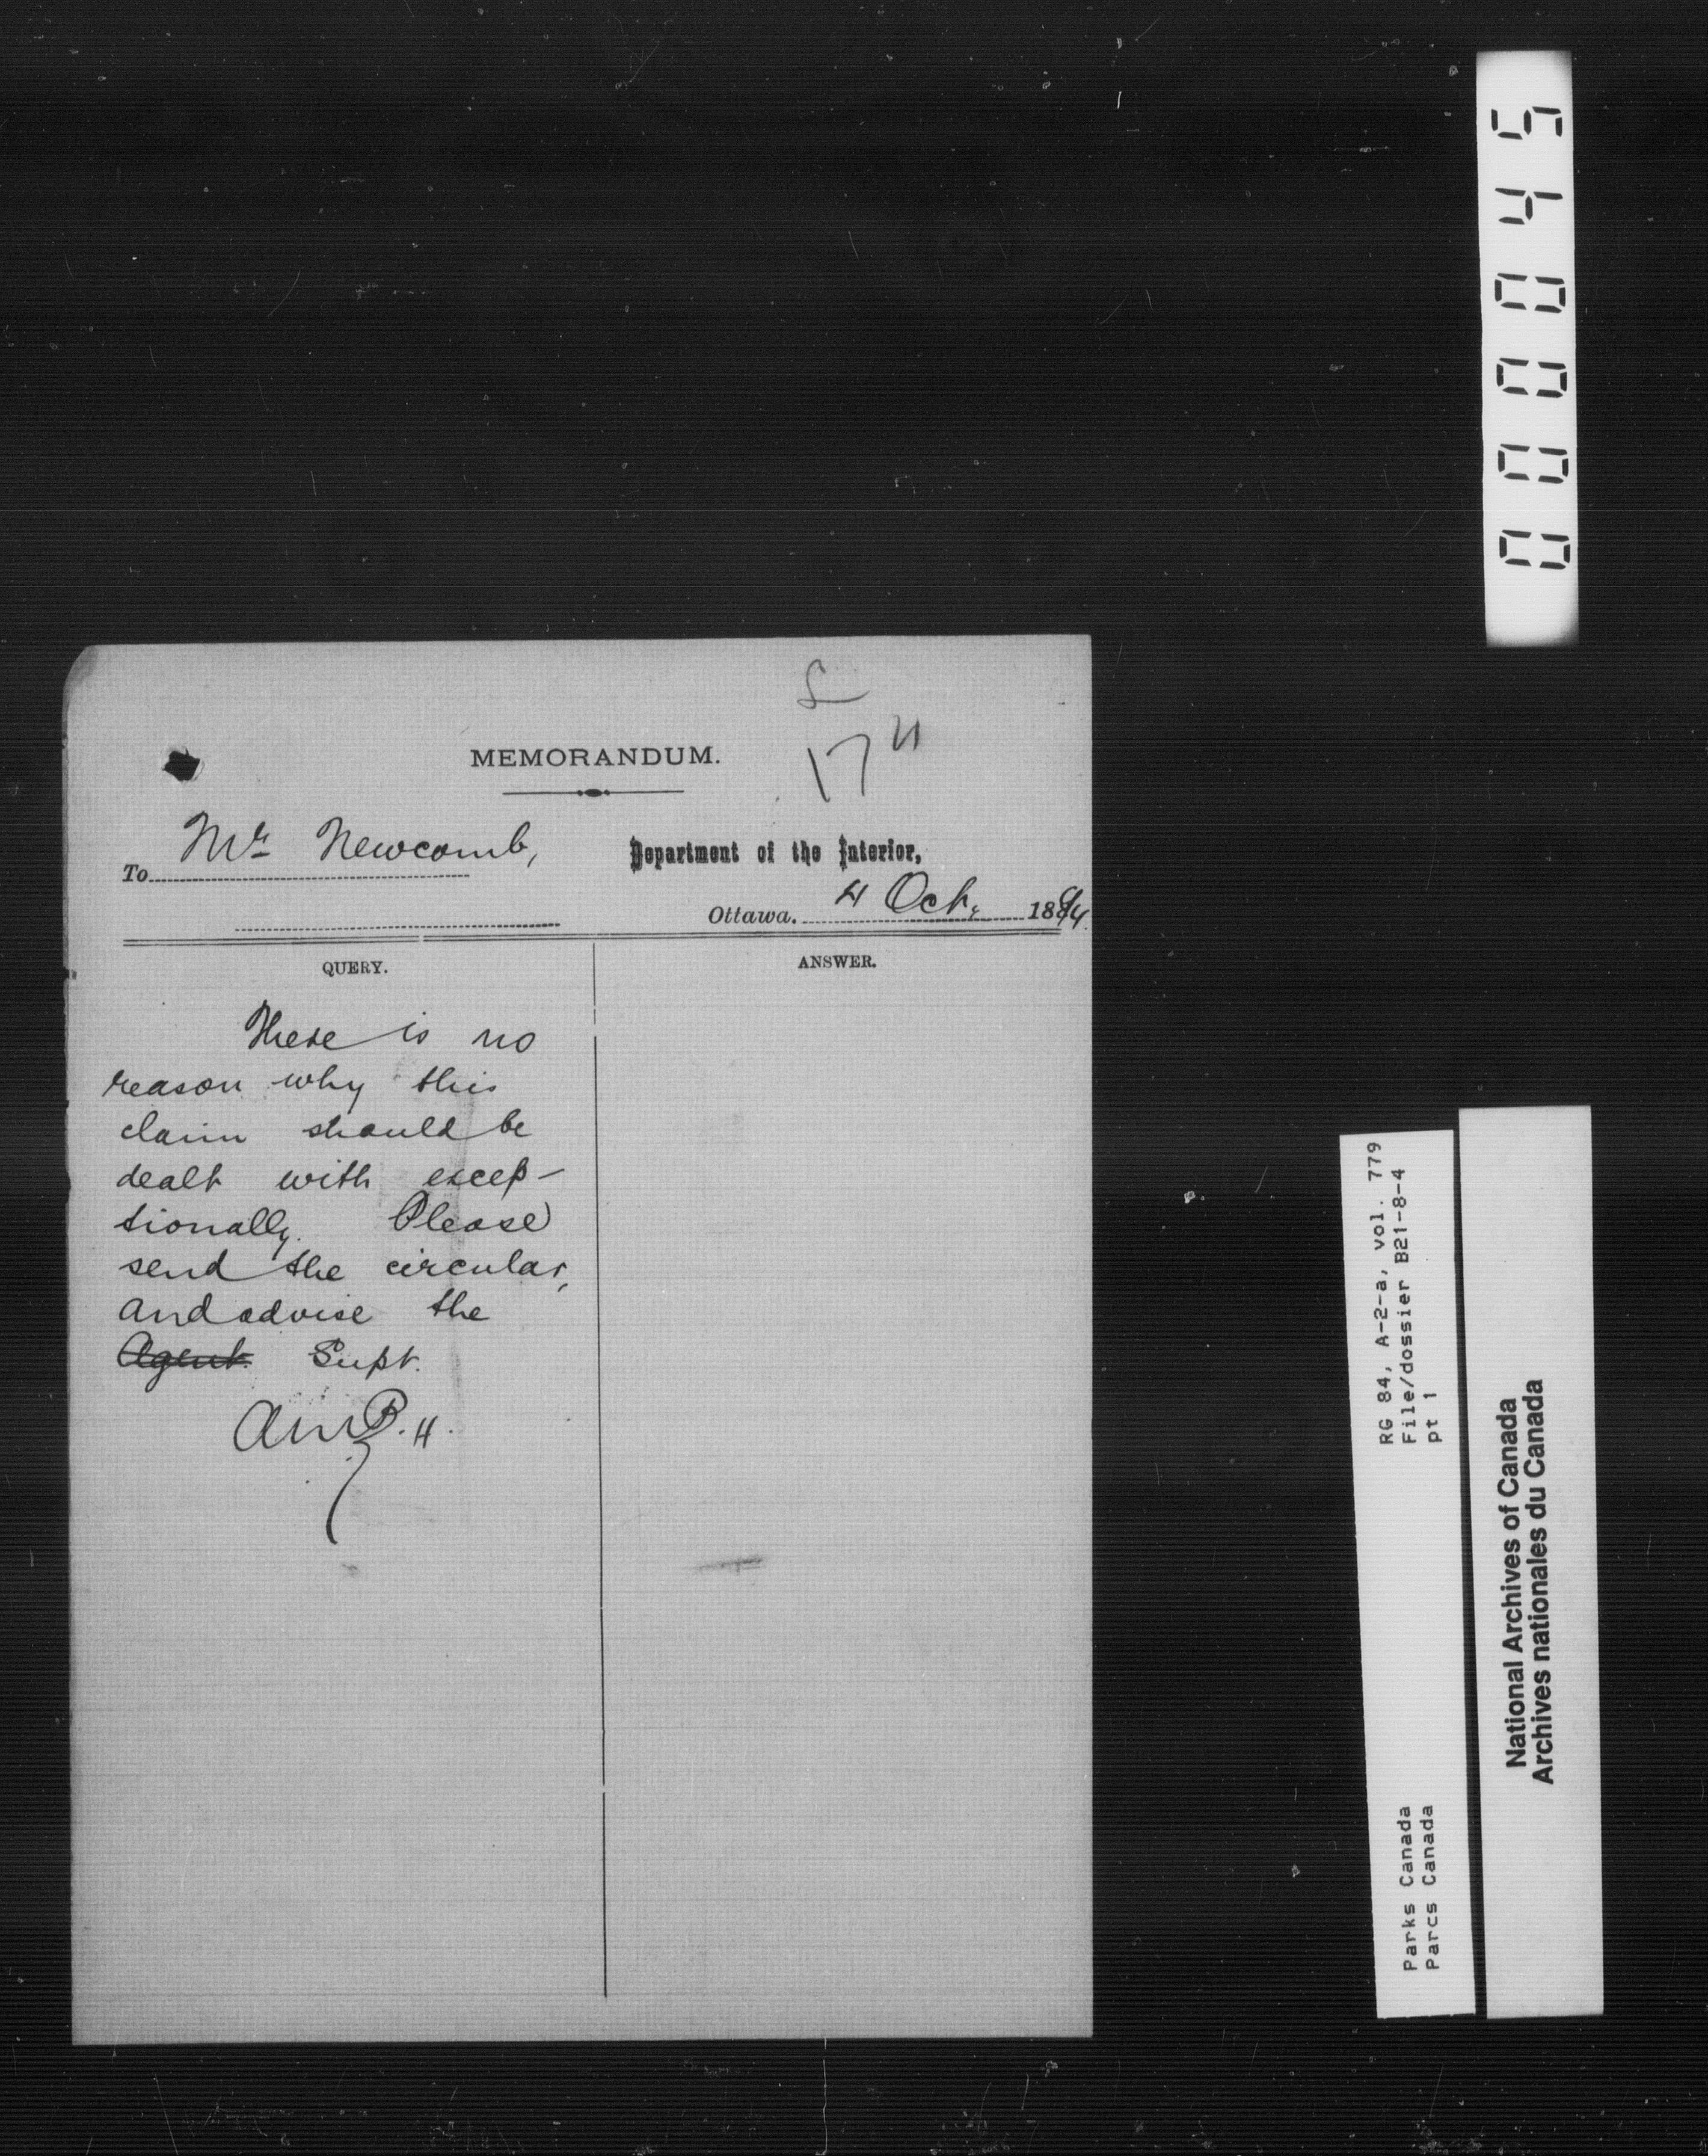 000045
MEMORANDUM.
17
To Mr Newcomb,
Department of the Interior,
Ottawa. 4 Oct. 1894
QUERY.
ANSWER.
There is no
reason why this
claim should be
dealt with excep-
tionally. Please
send the circular,
and advise the
Agent Supt.
RG 84, A-2-a, vol. 779
File/dossier B21-8-4
pt 1
Parks Canada
Parcs Canada
National Archives of Canada
Archives nationales du Canada